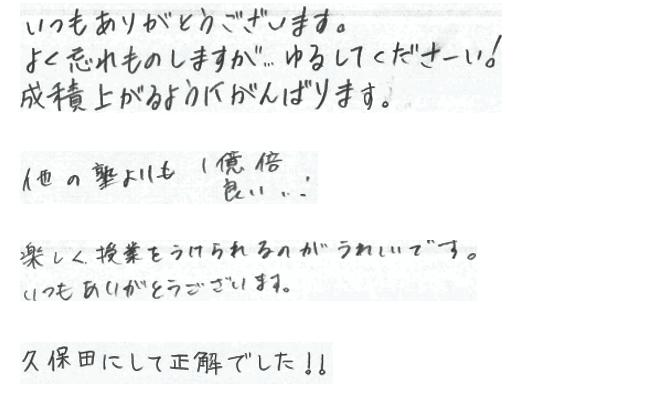 いつもありがとうございます。
よく忘れものしますが…ゆるしてくださーい!
成積上がるようにがんばります。
他の塾よりも 1億倍
良い..!
楽しく授業をうけられるのがうれしいです。
いつもありがとうございます。
久保田にして正解でした!!